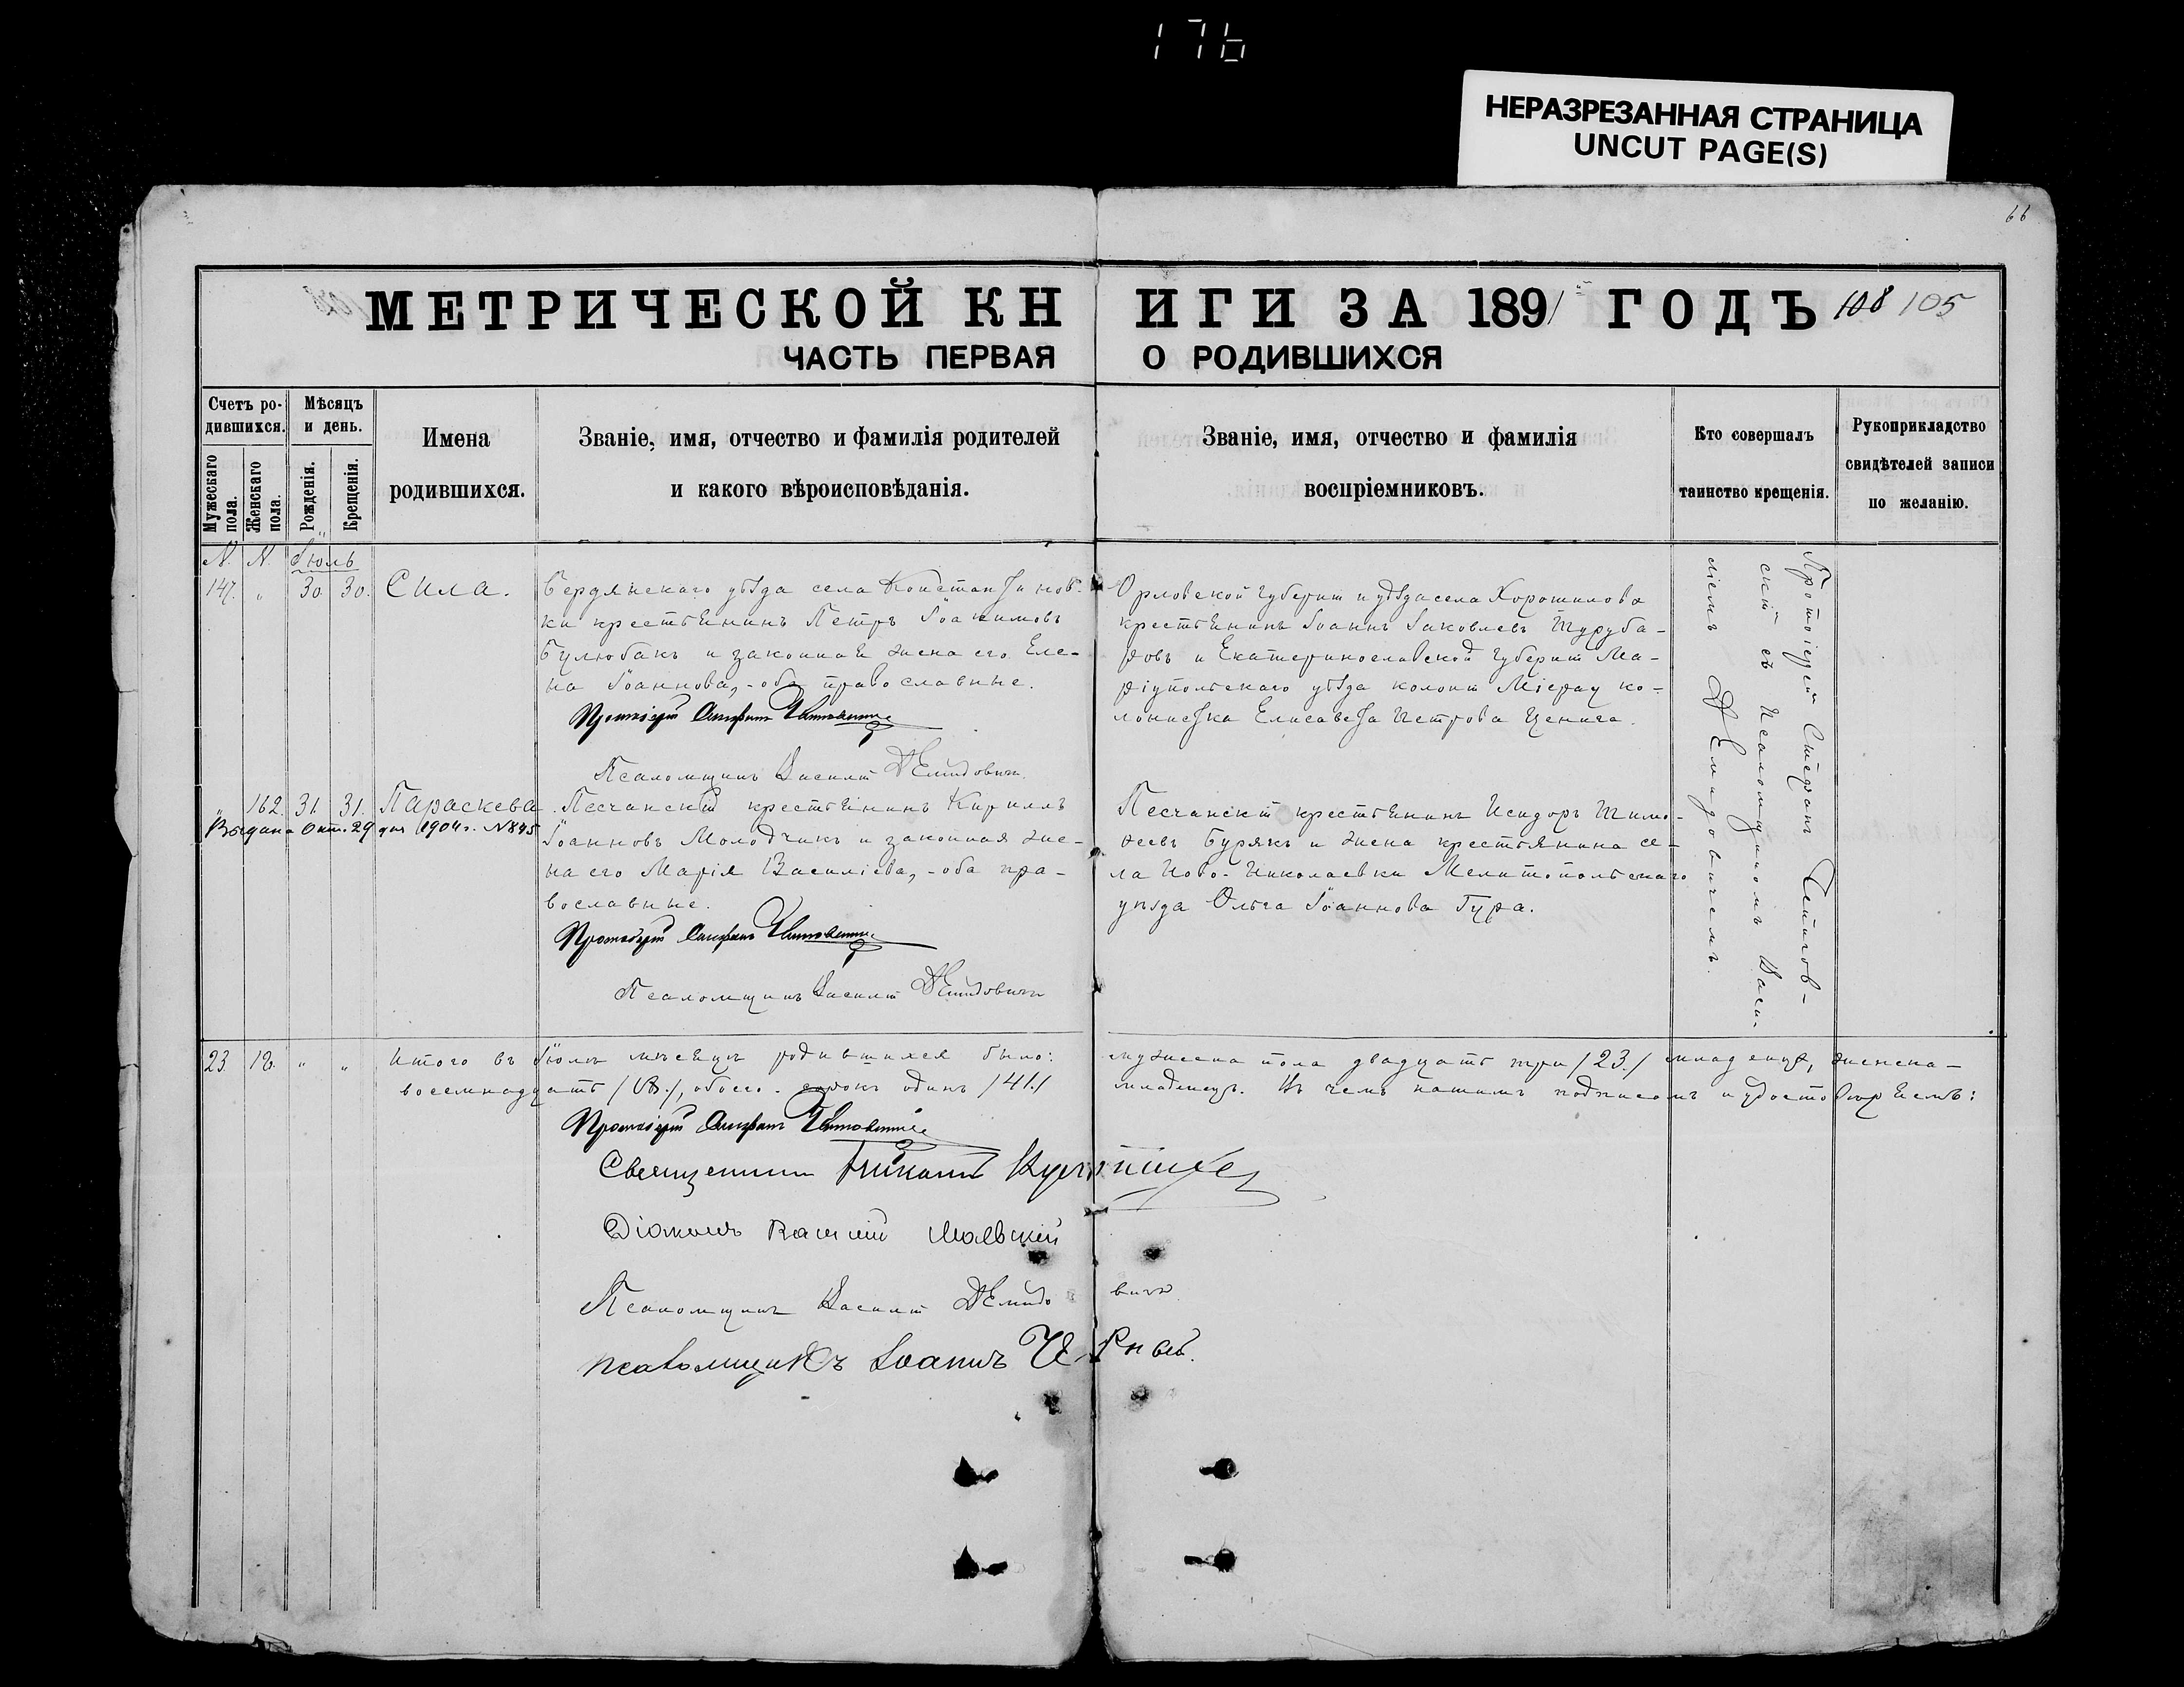 176
НЕРАЗРЕЗАННАЯ СТРАНИЦА
UNCUT PAGE(S)
66
МЕТРИЧЕСКОЙ КНИГИ ЗА 1891 ГОДЪ 108 105
ЧАСТЬ ПЕРВАЯ О РОДИВШИХСЯ
Счетъ родившихся.
Мужескаго пола.
Женскаго пола.
Мѣсяцъ и день.
Рожденія.
Крещенія.
Имена
родившихся.
Званіе, имя, отчество и фамилія родителей
и какого вѣроисповѣданія.
Званіе, имя, отчество и фамилія
воспріемниковъ.
Кто совершалъ
таинство крещенія.
Рукоприкладство
свидѣтелей записи
по желанію.
N. N. Іюль
147. " 30 30. Сила.
Бердянскаго уѣзда села Константинов-
ки крестьянинъ Петръ Іоакимовъ
Булюбакъ и законная жена его Еле-
на Іоаннова, - оба православные.
Протоіерей Стефанъ
Псаломщикъ Василій Демидовичъ
Орловской губерніи и уѣзда села Хорошилова
крестьянинъ Іоаннъ Іаковлевъ Шуруба-
ровъ и Екатеринославской губерніи Ма-
ріупольскаго уѣзда колоніи Мірау ко-
лонистка Елисавета Петрова Ценига.
Протоіерей Стефанъ
скій съ Псаломщикомъ Васи-
ліемъ Демидовичемъ.
" 162. 31. 31. Параскева
Выдана Окт. 29 дня 1904 г. N 845
Песчанскій крестьянинъ Кириллъ
Іоанновъ Молодчикъ и законная же-
на его Марія Василіева, - оба пра-
вославные.
Протоіерей Стефанъ
Псаломщикъ Василій Демидовичъ
Песчанскій крестьянинъ Исидоръ Тимо-
ѳеевъ Бурякъ и жена крестьянина се-
ла Ново-Николаевки Мелитопольскаго
уѣзда Ольга Іоаннова Гура.
23. 18. " " Итого въ Іюлѣ мѣсяцѣ родившихся было: мужеска пола двадцать три /23./ младенца, женска-
восемнадцать /18./, обоего - сорокъ одинъ /41./ младенецъ. Въ чемъ нашимъ подписомъ и удостовѣряемъ:
Протоіерей Стефанъ
Священникъ
Діаконъ Василій
Псаломщикъ Василій Демидовичъ
псаломщикъ Іоаннъ